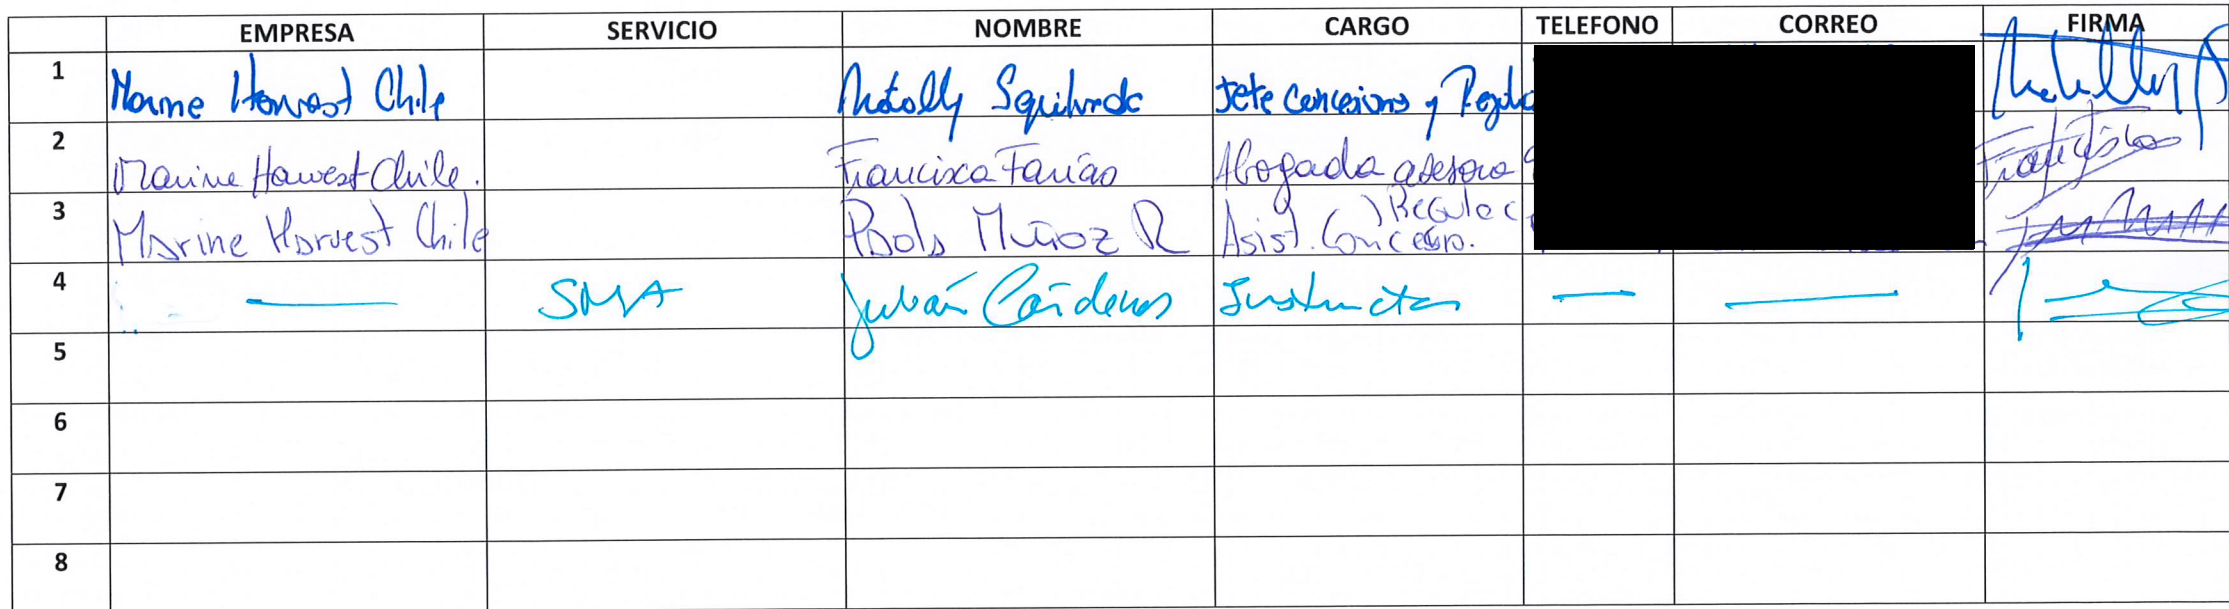 EMPRESA SERVICIO NOMBRE CARGO TELEFONO CORREO FIRMA
1 Marine Harvest Chile Natally Sepúlveda Jefe Concesiones y
2 Marine Harvest Chile. Francisca Farías Abogada asesora
3 Marine Harvest Chile Paola Muñoz R Asist. Concesio.
4 — SMA Julián Cárdenas Instructor — —
5
6
7
8